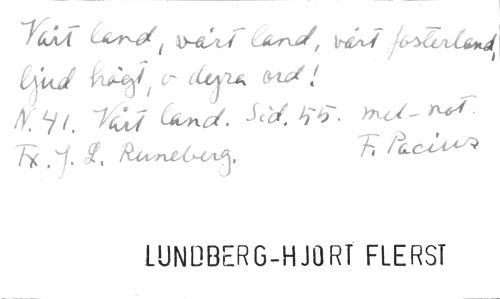 Vårt land, vårt land, vårt fosterland,
ljud högt, o dyra ord!
N. 41. Vårt land. Sid. 55. mel-not.
Tx. J. L. Runeberg. F. Pacius
LUNDBERG-HJORT FLERST